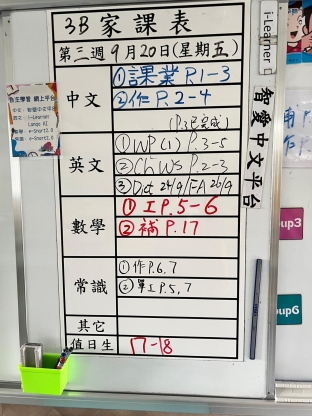 3B 家課表
第三週9月20日(星期五)
中文
①課業 P.1-3
②作 P.2-4
(P.3已完成)
英文
①WP(1) P.3-5
②Ch WS P.2-3
③Dict 24/9/FA 26/9
數學
①工P.5-6
②補P.17
常識
①作P.6,7
②單工P.5,7
其它
值日生
17-18
i-Learner
智愛中文平台
自主學習 網上平台
up3
up6